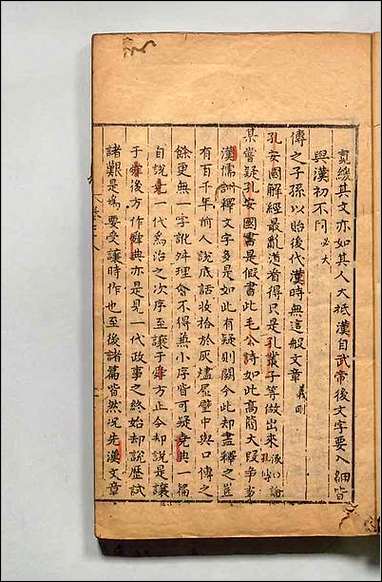 寬緩其文亦如其人大抵漢自武帝後文字要入細皆
與漢初不同必大
傳之子孫以貽後代漢時無這般文章義剛
孔安國解經最亂道看得只是孔叢子等做出來
某嘗疑孔安國書是假書比毛公詩如此高簡大段爭事
漢儒訓釋文字多是如此有疑則闕今此却盡釋之豈
有百千年前人說底話收拾於灰燼屋壁中與口傳之
餘更無一字訛舛理會不得兼小序皆可疑堯典一篇
自說堯一代為治之次序至讓于舜方止今却說是讓
于舜後方作舜典亦是見一代政事之終始却說歷試
諸艱是為要受讓時作也至後諸篇皆然况先漢文章